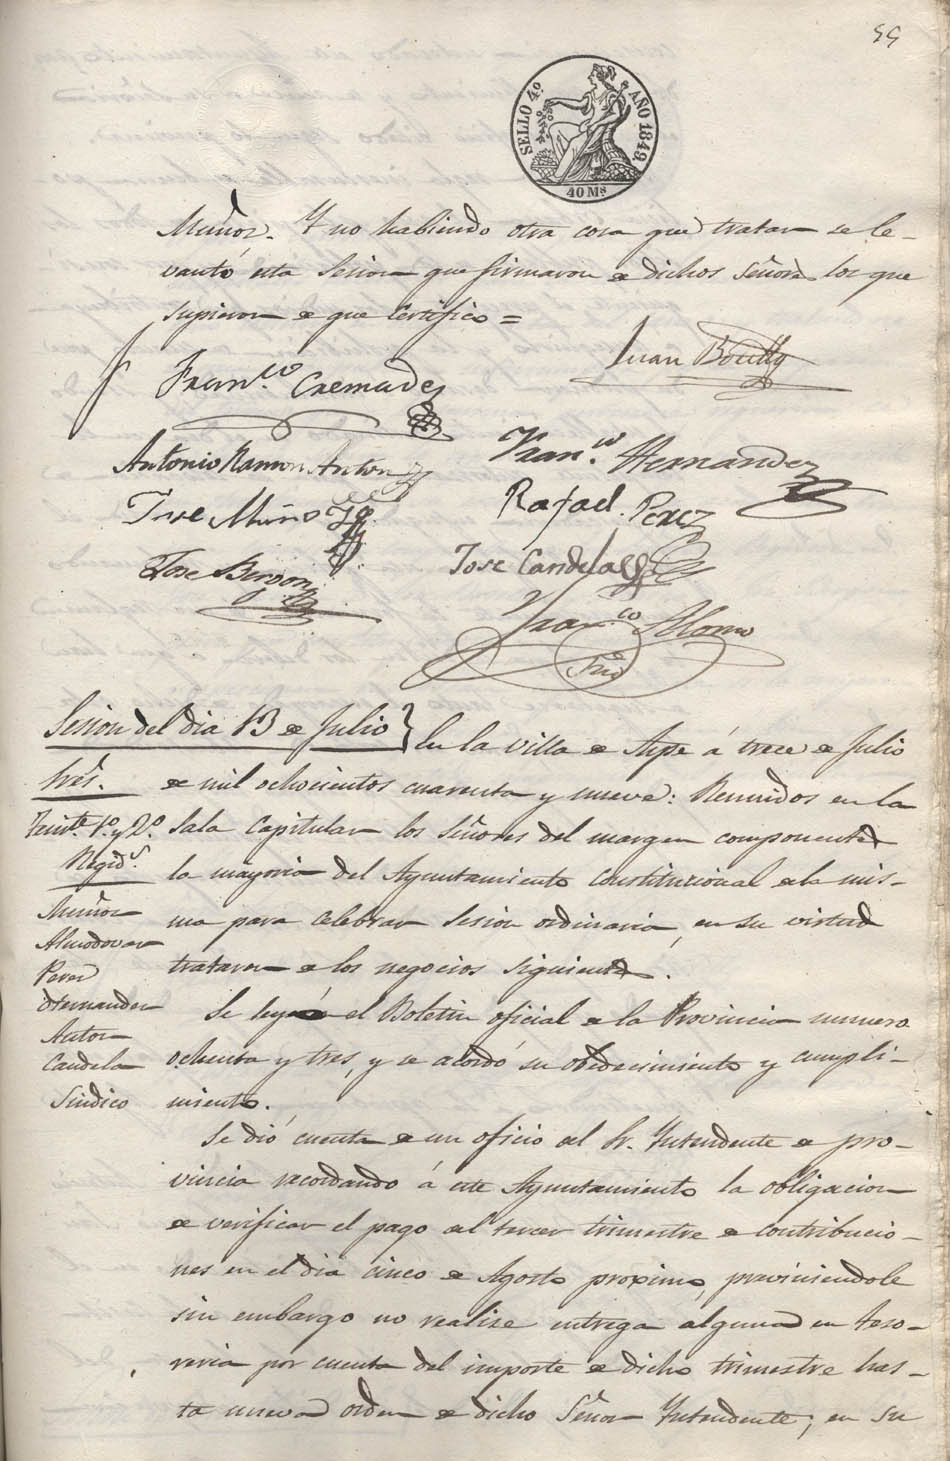 55
SELLO 4º AÑO 1849.
40 Ms
Muñoz. Y no habiendo otra cosa que tratar se le-
vantó esta Sesion que firmaron de dichos Señores los que
supieron de que Certifico =
Juan Botella
Fran.co Cremades
Antonio Ramon Anton
Fran.co Hernandez
Jose Muños
Rafael Perez
Jose Candela
Jose
Fran.co Alonso
Srio
Sesion del dia 13 de Julio
En la villa de Aspe á trece de Julio
Sres.
de mil ochocientos cuarenta y nueve: Reunidos en la
Tente. 1º y 2º
Sala Capitular los Señores del margen componentes
Regids.
la mayoria del Ayuntamiento Constitucional de la mis-
Muñoz
ma para celebrar Sesion ordinaria, en su virtud
Almodovar
trataron de los negocios siguientes.
Perez
Hernandez
Se leyó el Boletin oficial de la Provincia numero
Anton
ochenta y tres, y se acordó su obedecimiento y cumpli-
Candela
miento.
Sindico
Se dió cuenta de un oficio del Sr. Yntendente de pro-
vincia recordando á este Ayuntamiento la obligacion
de verificar el pago del tercer trimestre de contribucio-
nes en el dia cinco de Agosto proximo, previniendole
sin embargo no realize entrega alguna en teso-
reria por cuenta del importe de dicho trimestre has-
ta nueva orden de dicho Señor Yntendente; en su